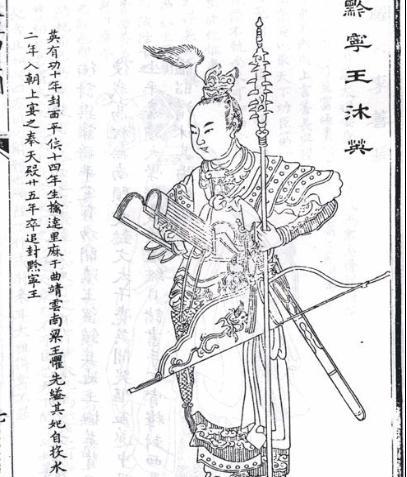 黔寧王沐英
英有功十年封西平侯十四年生擒達里麻于曲靖雲南梁王懼先縊其妃自投水
二年入朝上宴之奉天殿廿五年卒追封黔寧王